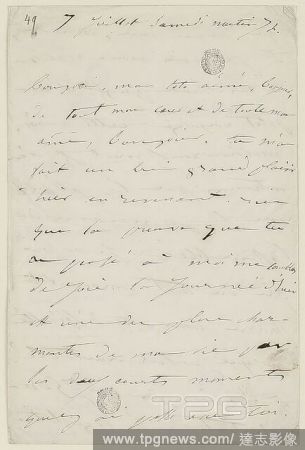 49
7 juillet samedi matin 7 h.
Bonjour, mon toto aimé, bonjour,
de tout mon cœur et de toute mon
âme, bonjour. tu m'as
fait un bien grand plaisir
hier en revenant. rien
que la preuve que tu
as pensé à moi me
de joie la journée d'hier
et une des plus char-
mantes de ma vie par
les deux courts moments
que j'ai passé avec toi.
TPG
www.tpgnews.com / 達志影像